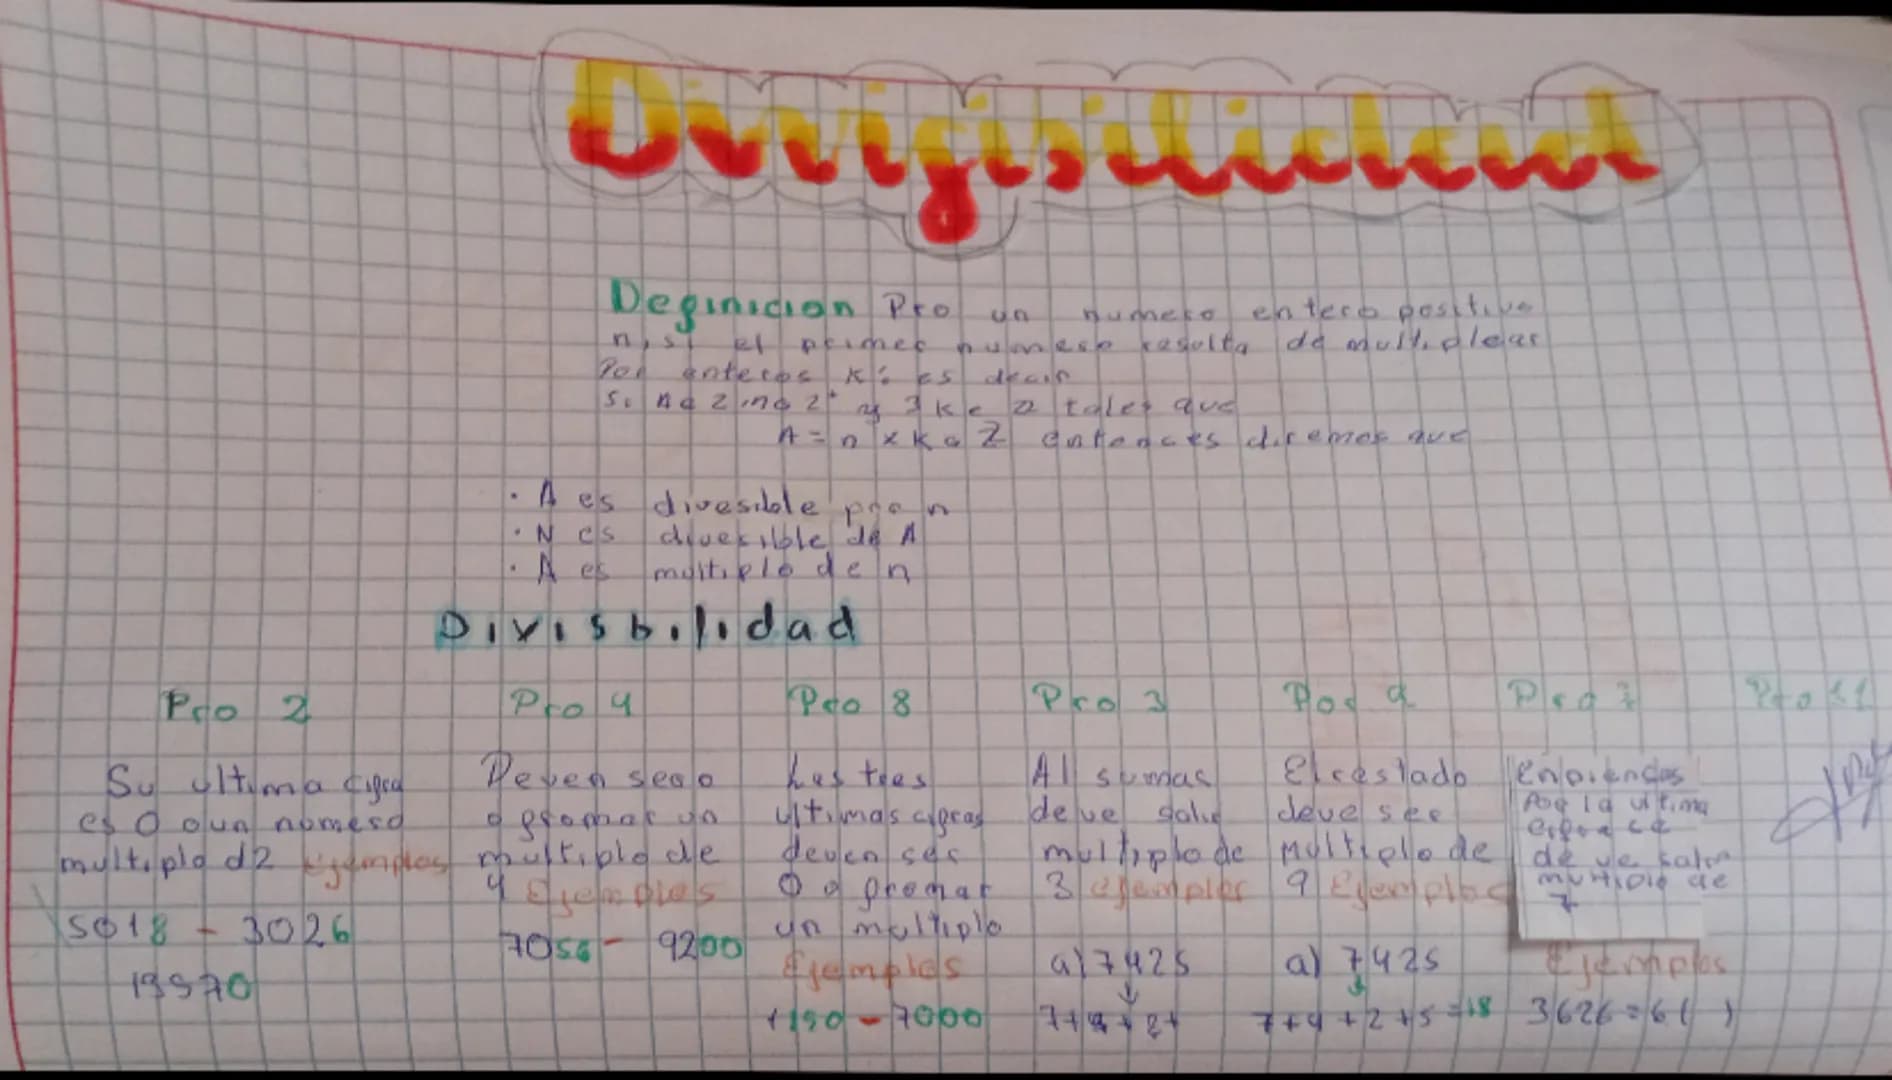 Divigisilidad
Definicion Pro un numero entero positivo
n, si el primer numero resulta de multiplicar
Por enteros K: es decir
si A e Z in e Z+ y 3 k e Z tales que
A = n x k e Z entonces diremos que
· A es divesible pro n
· N es divesible de A
· A es multiplo de n
Divisbilidad
Pro 2
Su ultima cifra
es 0 o un numero
multiplo d2 Ejemplos
5018 - 3026
19570
Pro 4
Deven ser 0
o formar un
multiplo de
4 Ejemplos
7056 - 9200
Pro 8
Las tres
ultimas cifras
deven ser
0 o formar
un multiplo
Ejemplos
1190 - 7000
Pro 3
Al sumar
deve salir
multiplo de
3 ejemplos
a) 7425
7+4+2+
Por 9
El reslado
deve ser
multiplo de
9 Ejemplos
a) 7425
7+4+2+5=18
Pro 7
Enpiendos
Por la ultima
deve salir
multiplo de
7
Ejemplos
3626=6( )
Pro 11